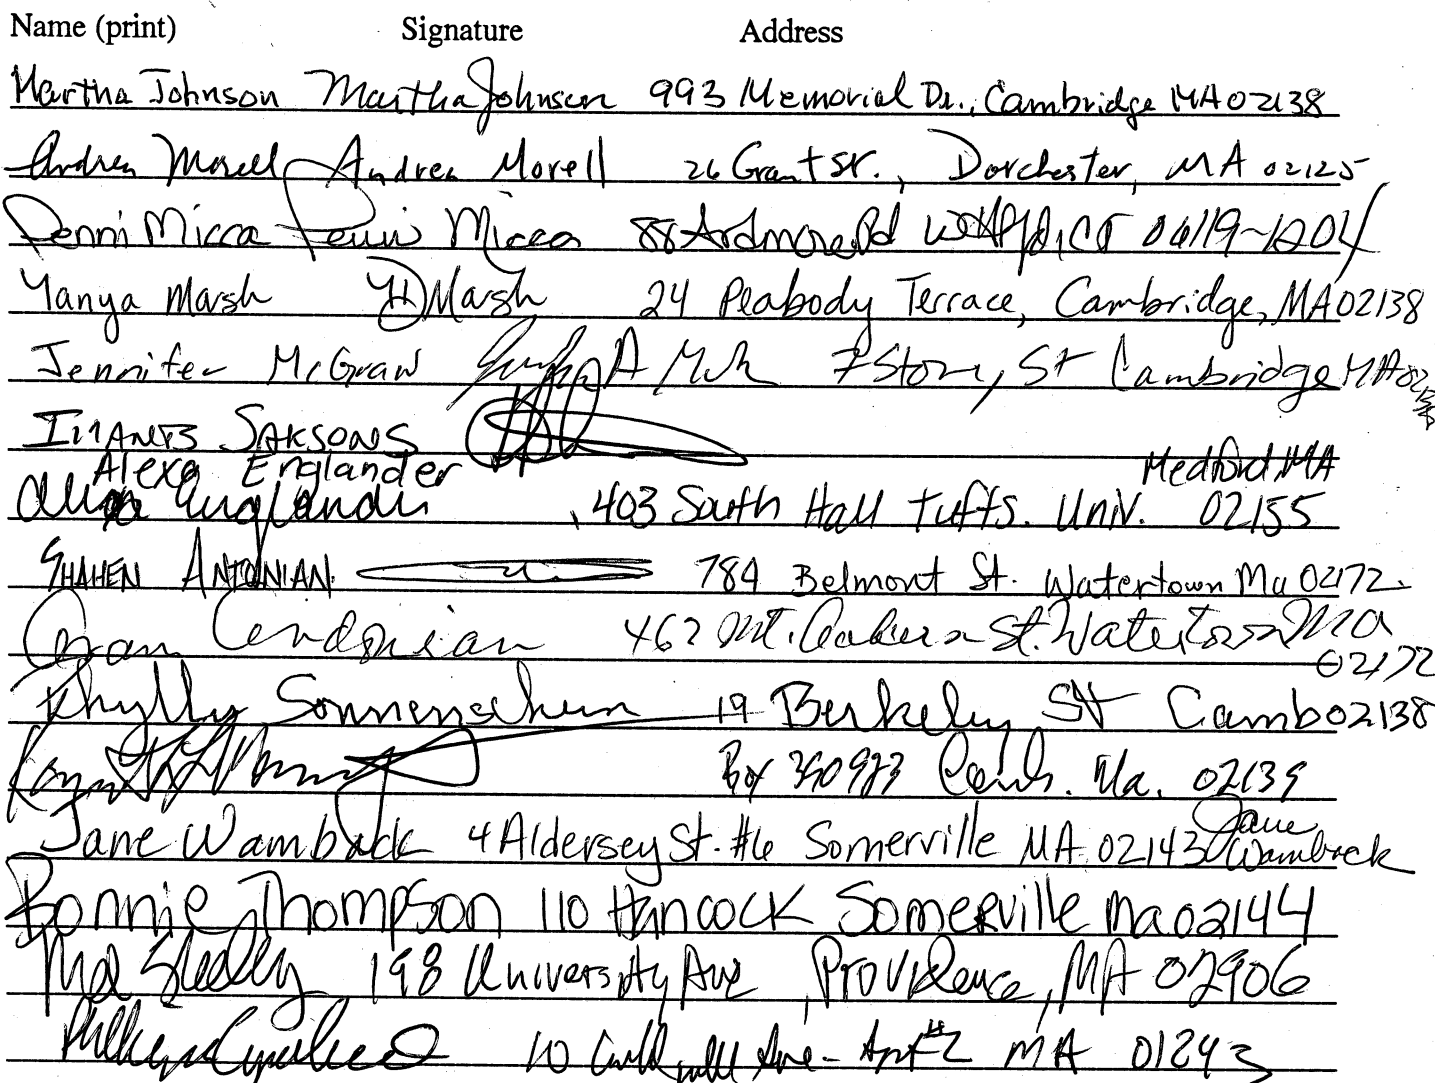 Name (print) Signature Address
Martha Johnson Martha Johnson 993 Memorial Dr., Cambridge MA 02138
Andrea Morell Andrea Morell 26 Grant St., Dorchester, MA 02125
Penni Micca Penni Micca 88 Ardmore Rd 06119-1204
Yanya Marsh Marsh 24 Peabody Terrace, Cambridge, MA 02138
Jennifer McGraw 7 Story St Cambridge MA
SAKSONS
Alexa Englander Medford, MA
Alexa Englander 403 South Hall Tufts. Univ. 02155
SHAHEN ANTONIAN 784 Belmont St. Watertown Ma 02172
462 Mt. Auburn St. Watertown Ma
02172
19 Berkeley St Camb 02138
Box Camb. Ma. 02139
Jane Wamback 4 Aldersey St. #6 Somerville MA 02143 Jane
Wamback
Bonnie Thompson 110 Hancock Somerville Ma 02144
198 University Ave, Providence, MA 02906
10 Ave - Apt #2 MA